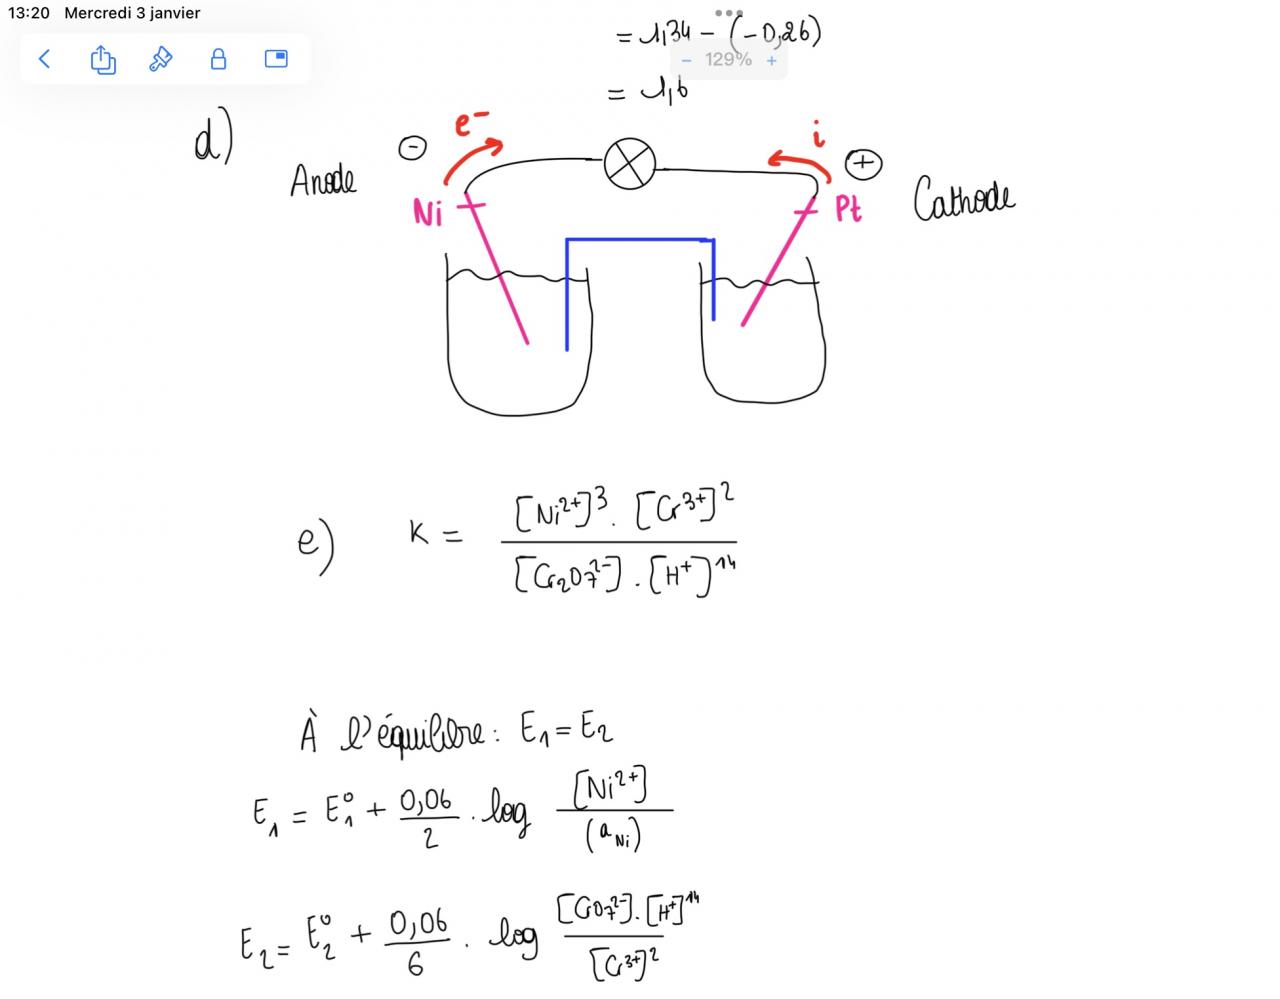 13:20 Mercredi 3 janvier
= 1,34 - (-0,26)
- 129% +
= 1,6
d)
e-
i
-
+
Anode
Ni
Pt
Cathode
e) K = [Ni2+]3 . [Cr3+]2 / [Cr2O7 2-] . [H+]14
À l'équilibre : E1 = E2
E1 = E1° + 0,06/2 . log [Ni2+] / (aNi)
E2 = E2° + 0,06/6 . log [CrO7 2-] . [H+]14 / [Cr3+]2